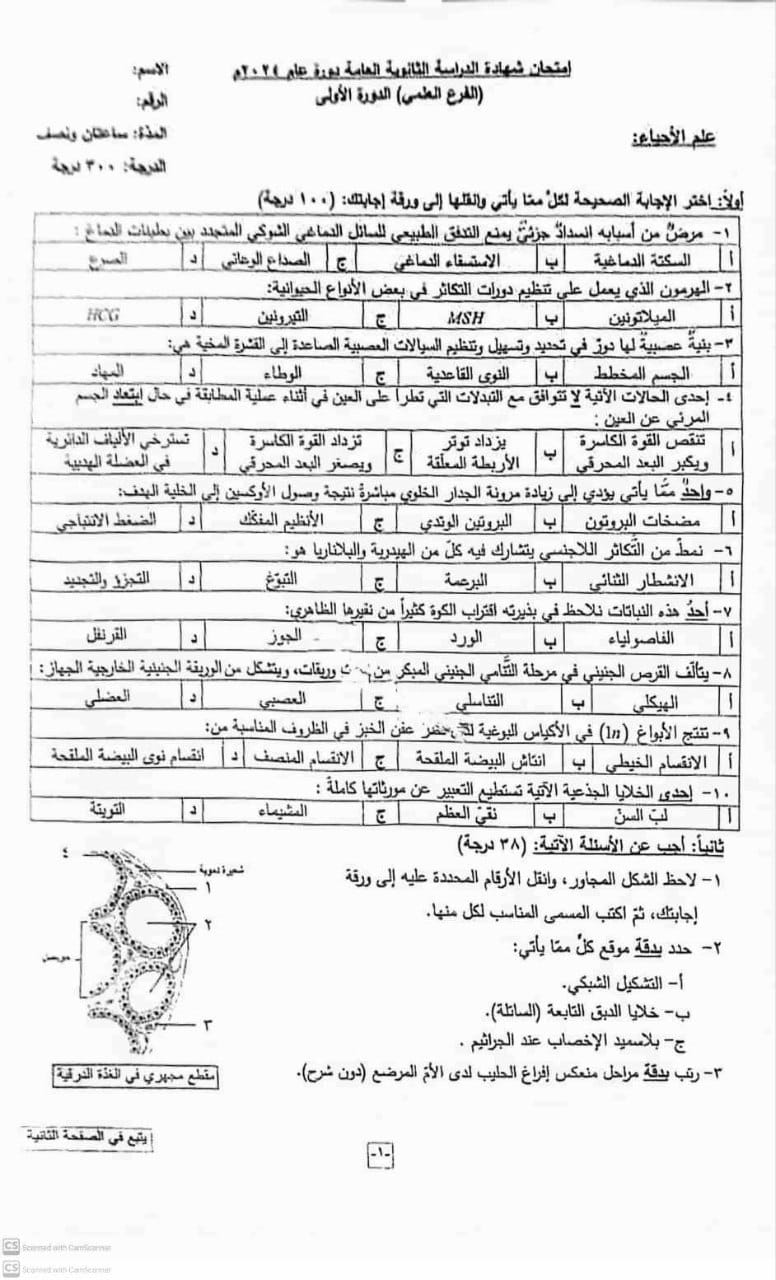 امتحان شهادة الدراسة الثانوية العامة دورة عام ٢٠٢٤م
(الفرع العلمي) الدورة الأولى
الاسم:
الرقم:
المدة: ساعتان ونصف
الدرجة: ٣٠٠ درجة
علم الأحياء:
أولاً: اختر الإجابة الصحيحة لكلّ ممّا يأتي وانقلها إلى ورقة إجابتك: (١٠٠ درجة)
١- مرضٌ من أسبابه انسدادٌ جزئيٌّ يمنع التدفق الطبيعي للسائل الدماغي الشوكي المتجدد بين بطينات الدماغ :
أ السكتة الدماغية ب الاستسقاء الدماغي ج الصداع الوعائي د الصرع
٢- الهرمون الذي يعمل على تنظيم دورات التكاثر في بعض الأنواع الحيوانية:
أ الميلاتونين ب MSH ج التيرونين د HCG
٣- بنيةٌ عصبيةٌ لها دورٌ في تحديد وتسهيل وتنظيم السيالات العصبية الصاعدة إلى القشرة المخية هي:
أ الجسم المخطط ب النوى القاعدية ج الوطاء د المهاد
٤- إحدى الحالات الآتية لا تتوافق مع التبدلات التي تطرأ على العين في أثناء عملية المطابقة في حال ابتعاد الجسم
المرئي عن العين :
أ تنقص القوة الكاسرة ويكبر البعد المحرقي ب يزداد توتر الأربطة المعلّقة ج تزداد القوة الكاسرة ويصغر البعد المحرقي د تسترخي الألياف الدائرية في العضلة الهدبية
٥- واحدٌ ممّا يأتي يؤدي إلى زيادة مرونة الجدار الخلوي مباشرةً نتيجة وصول الأوكسين إلى الخلية الهدف:
أ مضخات البروتون ب البروتين الوتدي ج الأنظيم المفكّك د الضغط الانتباجي
٦- نمطٌ من التّكاثر اللاجنسي يتشارك فيه كلّ من الهيدرية والبلاناريا هو:
أ الانشطار الثنائي ب البرعمة ج التبوّغ د التجزؤ والتجديد
٧- أحدُ هذه النباتات نلاحظ في بذيرته اقتراب الكوة كثيراً من نقيرها الظاهري:
أ الفاصولياء ب الورد ج الجوز د القرنفل
٨- يتألف القرص الجنيني في مرحلة التّنامي الجنيني المبكر من وريقات، ويتشكل من الوريقة الجنينية الخارجية الجهاز:
أ الهيكلي ب التناسلي ج العصبي د العضلي
٩- تنتج الأبواغ (1n) في الأكياس البوغية عفن الخبز في الظروف المناسبة من:
أ الانقسام الخيطي ب انتاش البيضة الملقحة ج الانقسام المنصف د انقسام نوى البيضة الملقحة
١٠- إحدى الخلايا الجذعية الآتية تستطيع التعبير عن مورثاتها كاملةً :
أ لبّ السنّ ب نقيّ العظم ج المشيماء د التويتة
ثانياً: أجب عن الأسئلة الآتية: (٣٨ درجة)
١- لاحظ الشكل المجاور، وانقل الأرقام المحددة عليه إلى ورقة
إجابتك، ثمّ اكتب المسمى المناسب لكل منها.
٢- حدد بدقة موقع كلّ ممّا يأتي:
أ- التشكيل الشبكي.
ب- خلايا الدبق التابعة (الساتلة).
ج- بلاسميد الإخصاب عند الجراثيم .
٣- رتب بدقة مراحل منعكس إفراغ الحليب لدى الأمّ المرضع (دون شرح).
٤
شعيرة دموية
١
٢
حويصل
٣
مقطع مجهري في الغدة الدرقية
يتبع في الصفحة الثانية
-١-
CS Scanned with CamScanner
CS Scanned with CamScanner